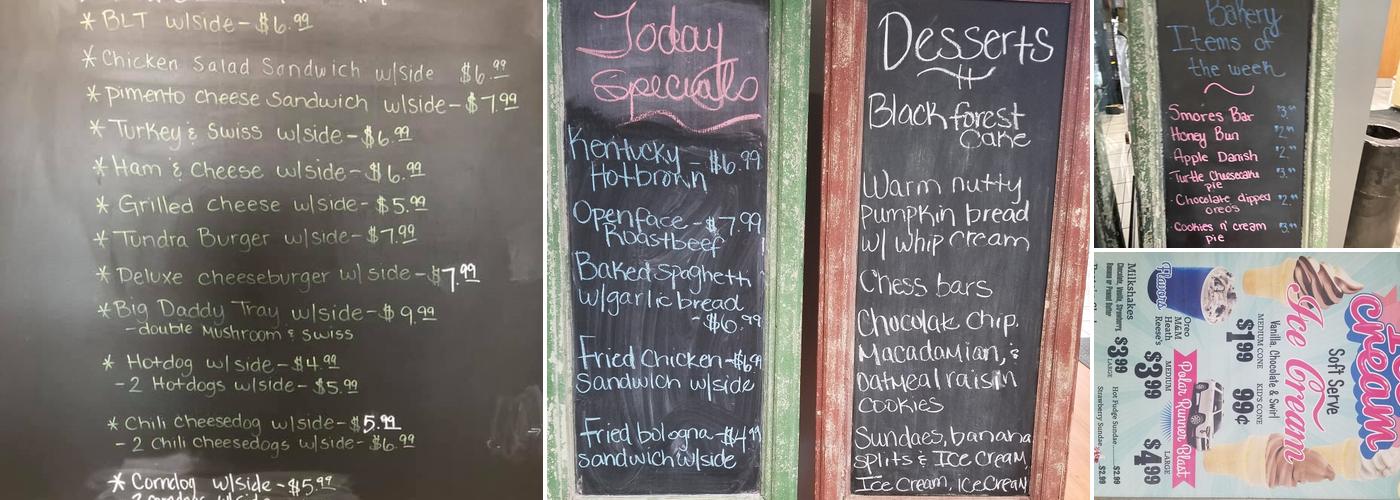 * BLT w/side - $6.99
* Chicken Salad Sandwich w/side $6.99
* pimento cheese Sandwich w/side - $7.99
* Turkey & Swiss w/side - $6.99
* Ham & Cheese w/side - $6.99
* Grilled cheese w/side - $5.99
* Tundra Burger w/side - $7.99
* Deluxe cheeseburger w/side - $7.99
* Big Daddy Tray w/side - $9.99
- double Mushroom & Swiss
* Hotdog w/side - $4.99
- 2 Hotdogs w/side - $5.99
* Chili cheesedog w/side - $5.99
- 2 Chili Cheesedogs w/side - $6.99
* Corndog w/side - $5.99
Today
Specials
Kentucky - $6.99
Hotbrown
Openface - $7.99
Roastbeef
Baked Spaghetti
w/garlic bread
- $6.99
Fried Chicken - $6.99
Sandwich w/side
Fried bologna - $4.99
sandwich w/side
Desserts
Black forest
Cake
Warm nutty
pumpkin bread
w/ whip cream
Chess bars
Chocolate chip,
Macadamian, &
Oatmeal raisin
cookies
Sundaes, banana
splits & Ice Cream,
Ice Cream, Ice Cream
Bakery
Items of
the week
Smores Bar
Honey Bun
Apple Danish
Turtle Cheesecake
pie
Chocolate dipped
oreos
Cookies n' cream
pie
Cream
Soft Serve
Ice Cream
Vanilla, Chocolate & Swirl
MEDIUM CONE KID'S CONE
$1.99 99¢
Polar Runner Blast
MEDIUM LARGE
$3.99 $4.99
Flavors
Oreo
M&M
Heath
Reese's
Milkshakes
Chocolate, Vanilla, Strawberry,
Banana or Peanut Butter
LARGE
$3.99
Hot Fudge Sundae $2.99
Strawberry Sundae $2.99